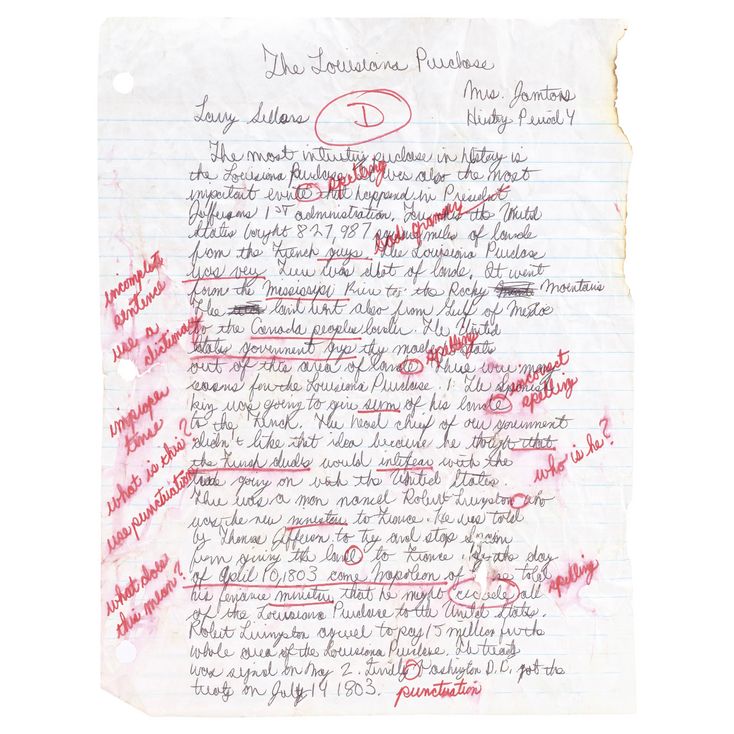 The Louisiana Purchase
Mrs. Jamtons
Larry Sellars
D
History Period 4
The most intrustry purchase in History is
the Louisiana Purchase. It was also the most
spelling
important evente that happend in President
Jeffersons 1ST administration. the United
bad grammar
States boryht 827,987 miles of lande
from the French guys. The Louisiana Purchase
was very. was alot of lande. It went
incomplete sentence
from the Mississippi River to the Rocky Mountains
The also from Gulf of Mexico
use a dictionary
to the Canada peoples The United
states government gys thy made States
spelling
out of this area of lande. There wer many
incorrect spelling
for the Louisiana Purchase. 1. The
king was going to give sum of his lande
improper tense
to the French. The head chief of our government
didn't like that idea because he that
who is he?
what is this?
the Frensh dudes would with the
use punctuation
going on with the United States.
There was a man named Robert Livingston who
was the new minister to France. He was told
by Thomas Jefferson to try and stop
from giving the land to France. the day
what does this mean?
of April 10, 1803 came Napoleon told
spelling
his minister that he might all
of the Louisiana Purchase to the United States.
Robert Livingston to pay 15 million for the
whole area of the Louisiana Purchase. The treaty
was on May 2. Washington D.C. got the
treaty on July 14 1803.
punctuation